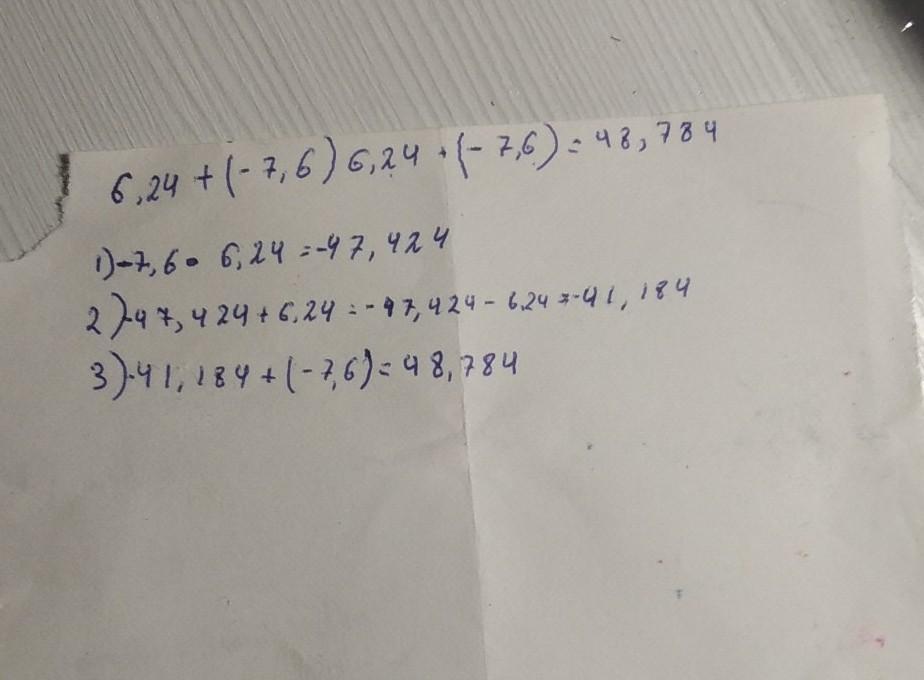 6,24 + (- 7,6) 6,24 + (- 7,6) = 48,784
1) -7,6 • 6,24 = -47,424
2) -47,424 + 6,24 = -47,424 - 6,24 = -41,184
3) -41,184 + (- 7,6) = 48,784